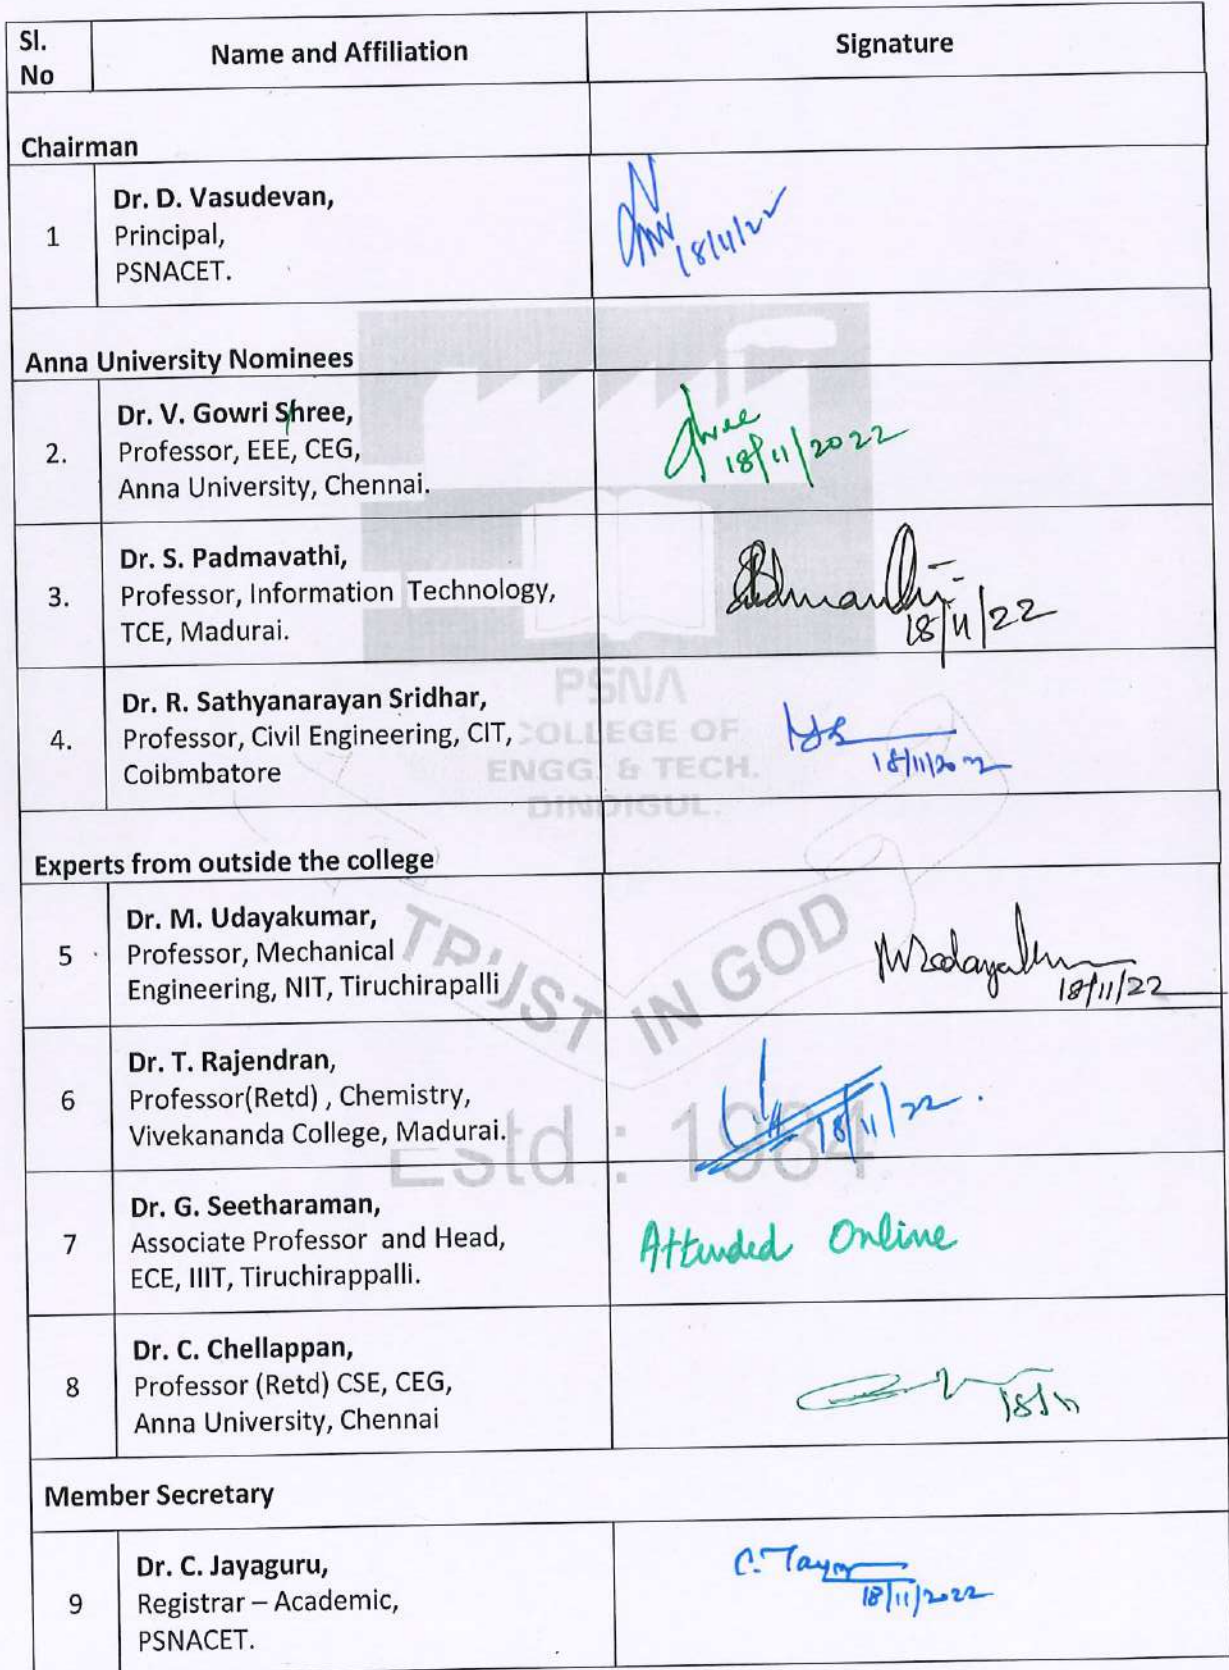 Sl.
No
Name and Affiliation
Signature
Chairman
1
Dr. D. Vasudevan,
Principal,
PSNACET.
18/11/22
Anna University Nominees
2.
Dr. V. Gowri Shree,
Professor, EEE, CEG,
Anna University, Chennai.
Shree
18/11/2022
3.
Dr. S. Padmavathi,
Professor, Information Technology,
TCE, Madurai.
18/11/22
PSNA
COLLEGE OF
ENGG. & TECH.
DINDIGUL.
4.
Dr. R. Sathyanarayan Sridhar,
Professor, Civil Engineering, CIT,
Coibmbatore
Experts from outside the college
TRUST IN GOD
5
Dr. M. Udayakumar,
Professor, Mechanical
Engineering, NIT, Tiruchirapalli
18/11/22
6
Dr. T. Rajendran,
Professor(Retd) , Chemistry,
Vivekananda College, Madurai.
18/11/22.
Estd : 1984
7
Dr. G. Seetharaman,
Associate Professor and Head,
ECE, IIIT, Tiruchirappalli.
Attended Online
8
Dr. C. Chellappan,
Professor (Retd) CSE, CEG,
Anna University, Chennai
18/11
Member Secretary
9
Dr. C. Jayaguru,
Registrar – Academic,
PSNACET.
18/11/2022